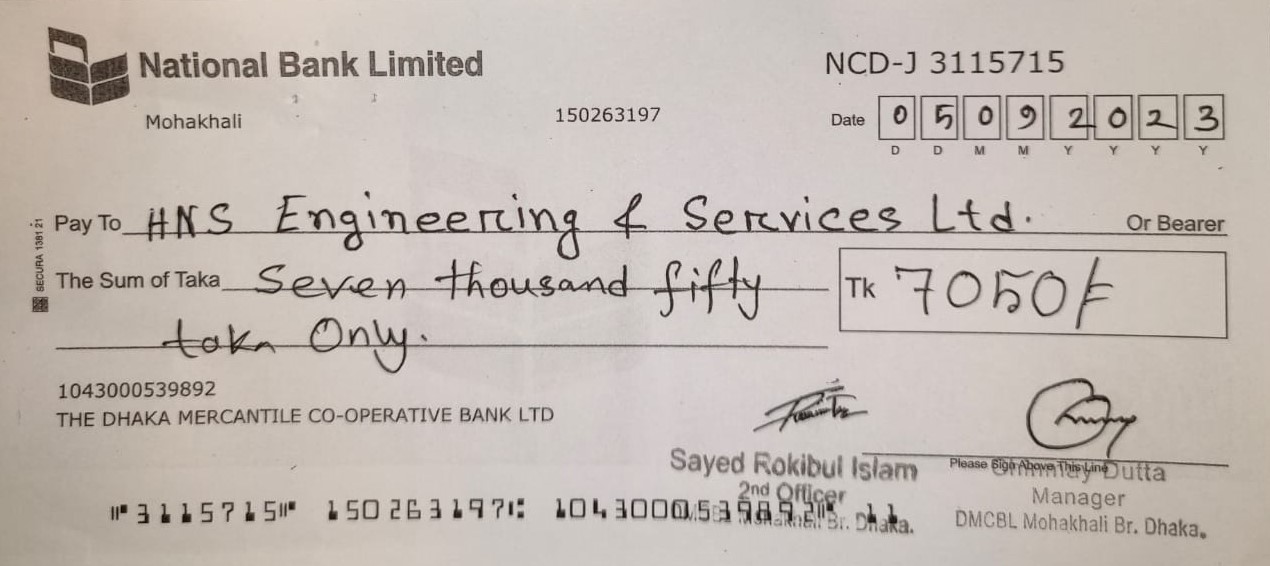 National Bank Limited
NCD-J 3115715
Mohakhali
150263197
Date 0 5 0 9 2 0 2 3
D D M M Y Y Y Y
SECURA 1381 21
Pay To HNS Engineering & Services Ltd. Or Bearer
The Sum of Taka Seven thousand fifty
Tk 7050/=
taka Only.
1043000539892
THE DHAKA MERCANTILE CO-OPERATIVE BANK LTD
Sayed Rokibul Islam
Please Sign Above This Line
Dutta
2nd Officer
Manager
Br. Dhaka.
DMCBL Mohakhali Br. Dhaka.
⑈3115715⑈ 150263197⑆ 1043000539892⑈ 11